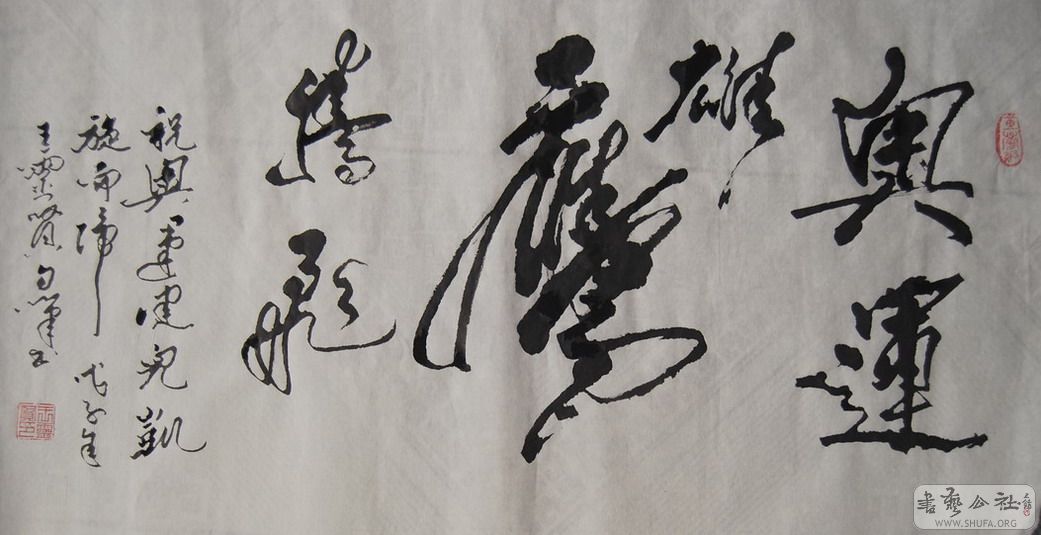 奧運
雄鷹
騰飛
祝奧運健兒凱
旋而歸 戊子年
王靈賢
書藝公社
WWW.SHUFA.ORG